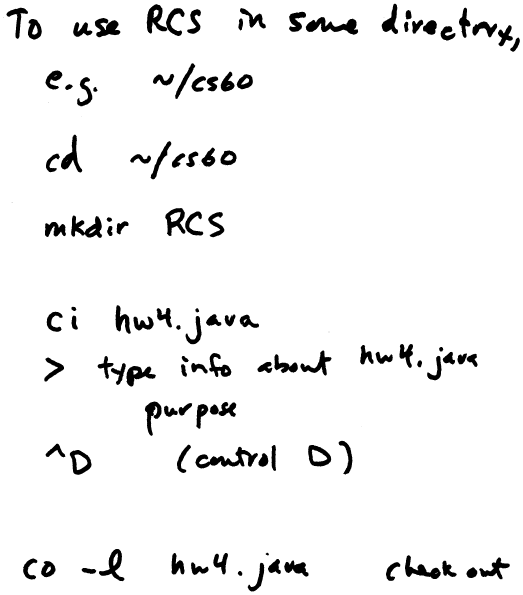 To use RCS in some directory,
e.g. ~/cs60
cd ~/cs60
mkdir RCS
ci hw4.java
> type info about hw4.java
purpose
^D (control D)
co -l hw4.java check out